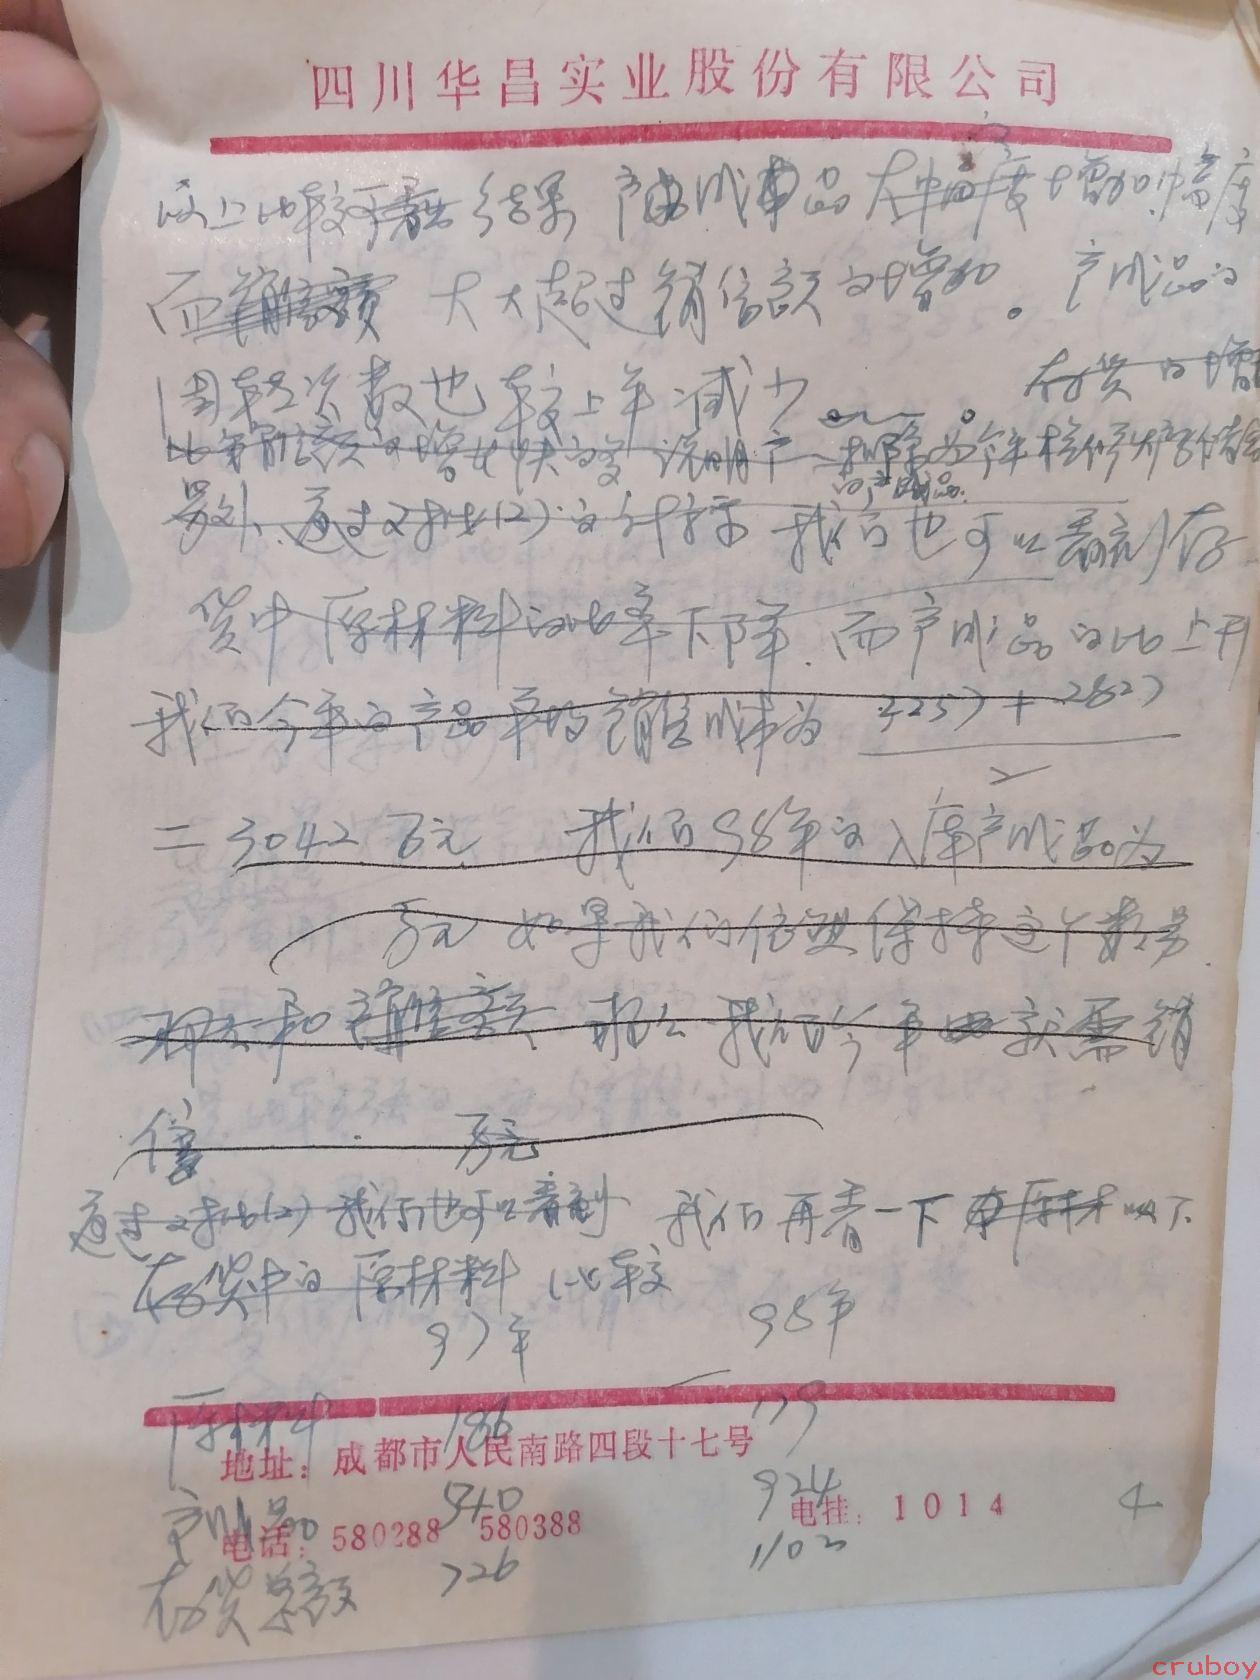 四川华昌实业股份有限公司
以上比较结果 产成品 大幅度增加 幅度
而销售额 大大超过销售额的增加。产成品的
周转次数也较上年减少 。 存货的增
比销售额的增长快的多 说明产
的产成品.
另外、通过对比(2)的计算 我们也可以看到存
货中原材料的比率下降.而产成品的比上升
我们今年的产品平均销售成本为 3257+2827
2
= 3042 万元 我们98年的入库产成品为
万元 如果我们依然保持这个数字
和销售额 那么我们今年就需销
售 万元
通过对比(2)我们也可以看到 我们再看一下 原材 以下
存货中的原材料 比较
97年 98年
原材料 186 179
地址：成都市人民南路四段十七号
产成品 540 924
电话：580288 580388 电挂：1014 4
存货总额 726 1103
cruboy